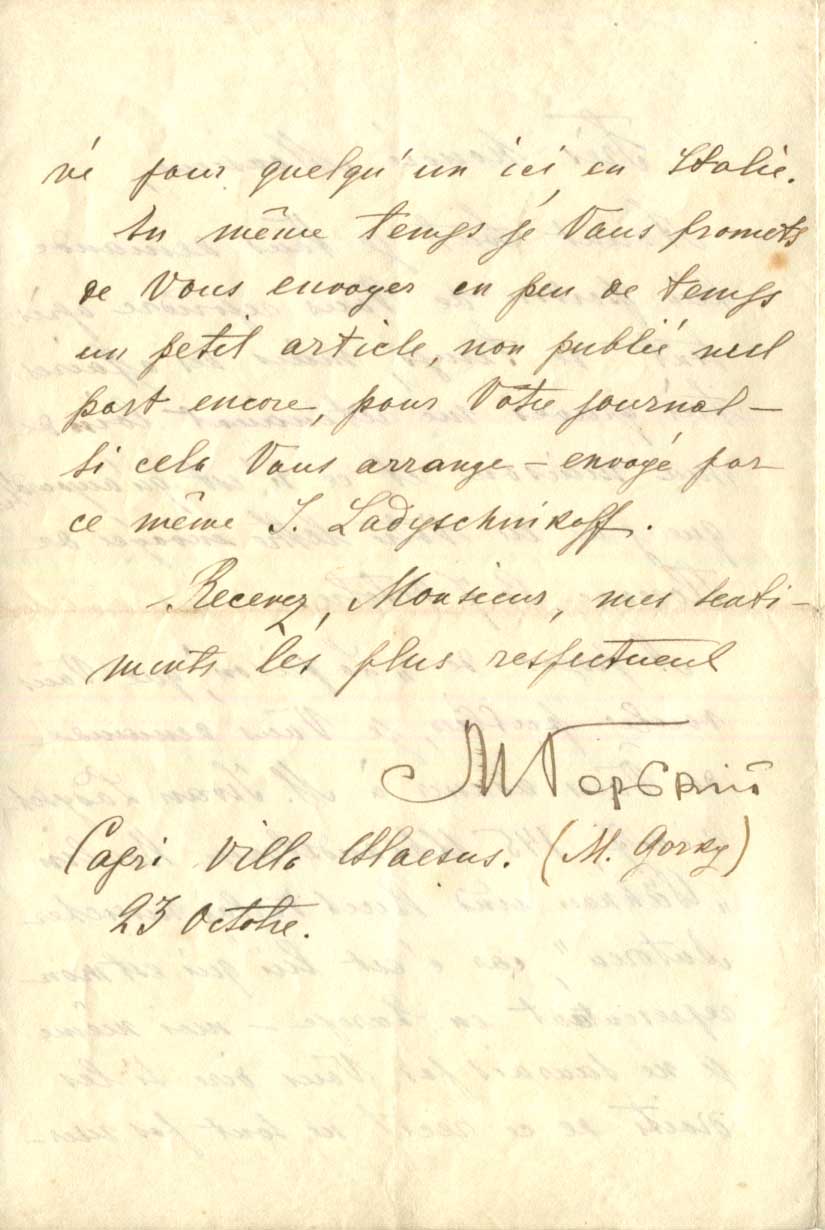 vé pour quelqu'un ici, en Italie.
En même temps je Vous promets
de Vous envoyer en peu de temps
un petit article, non publié nul
part encore, pour Votre journal —
si cela Vous arrange — envoyé par
ce même I. Ladyschnikoff.
Recevez, Monsieur, mes senti-
ments les plus respectueux
М Горький
Capri Villa Blaesus. (M. Gorky)
23 Octobre.